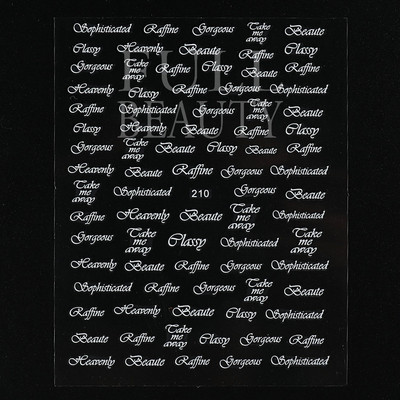 Sophisticated Raffine Gorgeous Take me away Raffine
Classy Heavenly Beaute Raffine Classy
Gorgeous Take me away Raffine Classy Gorgeous Beaute
FULL
Heavenly Classy Raffine Gorgeous Heavenly
Raffine Sophisticated Gorgeous Take me away Beaute
BEAUTY
Classy Heavenly Beaute Raffine Classy
Gorgeous Take me away Beaute Classy Beaute Gorgeous
Heavenly Beaute Raffine Gorgeous Heavenly
Take me away Sophisticated 210 Gorgeous Beaute
Raffine Heavenly Beaute Take me away Sophisticated
Gorgeous Take me away Classy Gorgeous Take me away
Heavenly Beaute Raffine Gorgeous Sophisticated
Sophisticated Raffine Gorgeous Take me away Beaute
Raffine Heavenly Beaute Classy Sophisticated
Beaute Raffine Take me away Classy Gorgeous Raffine
Heavenly Beaute Raffine Gorgeous Sophisticated